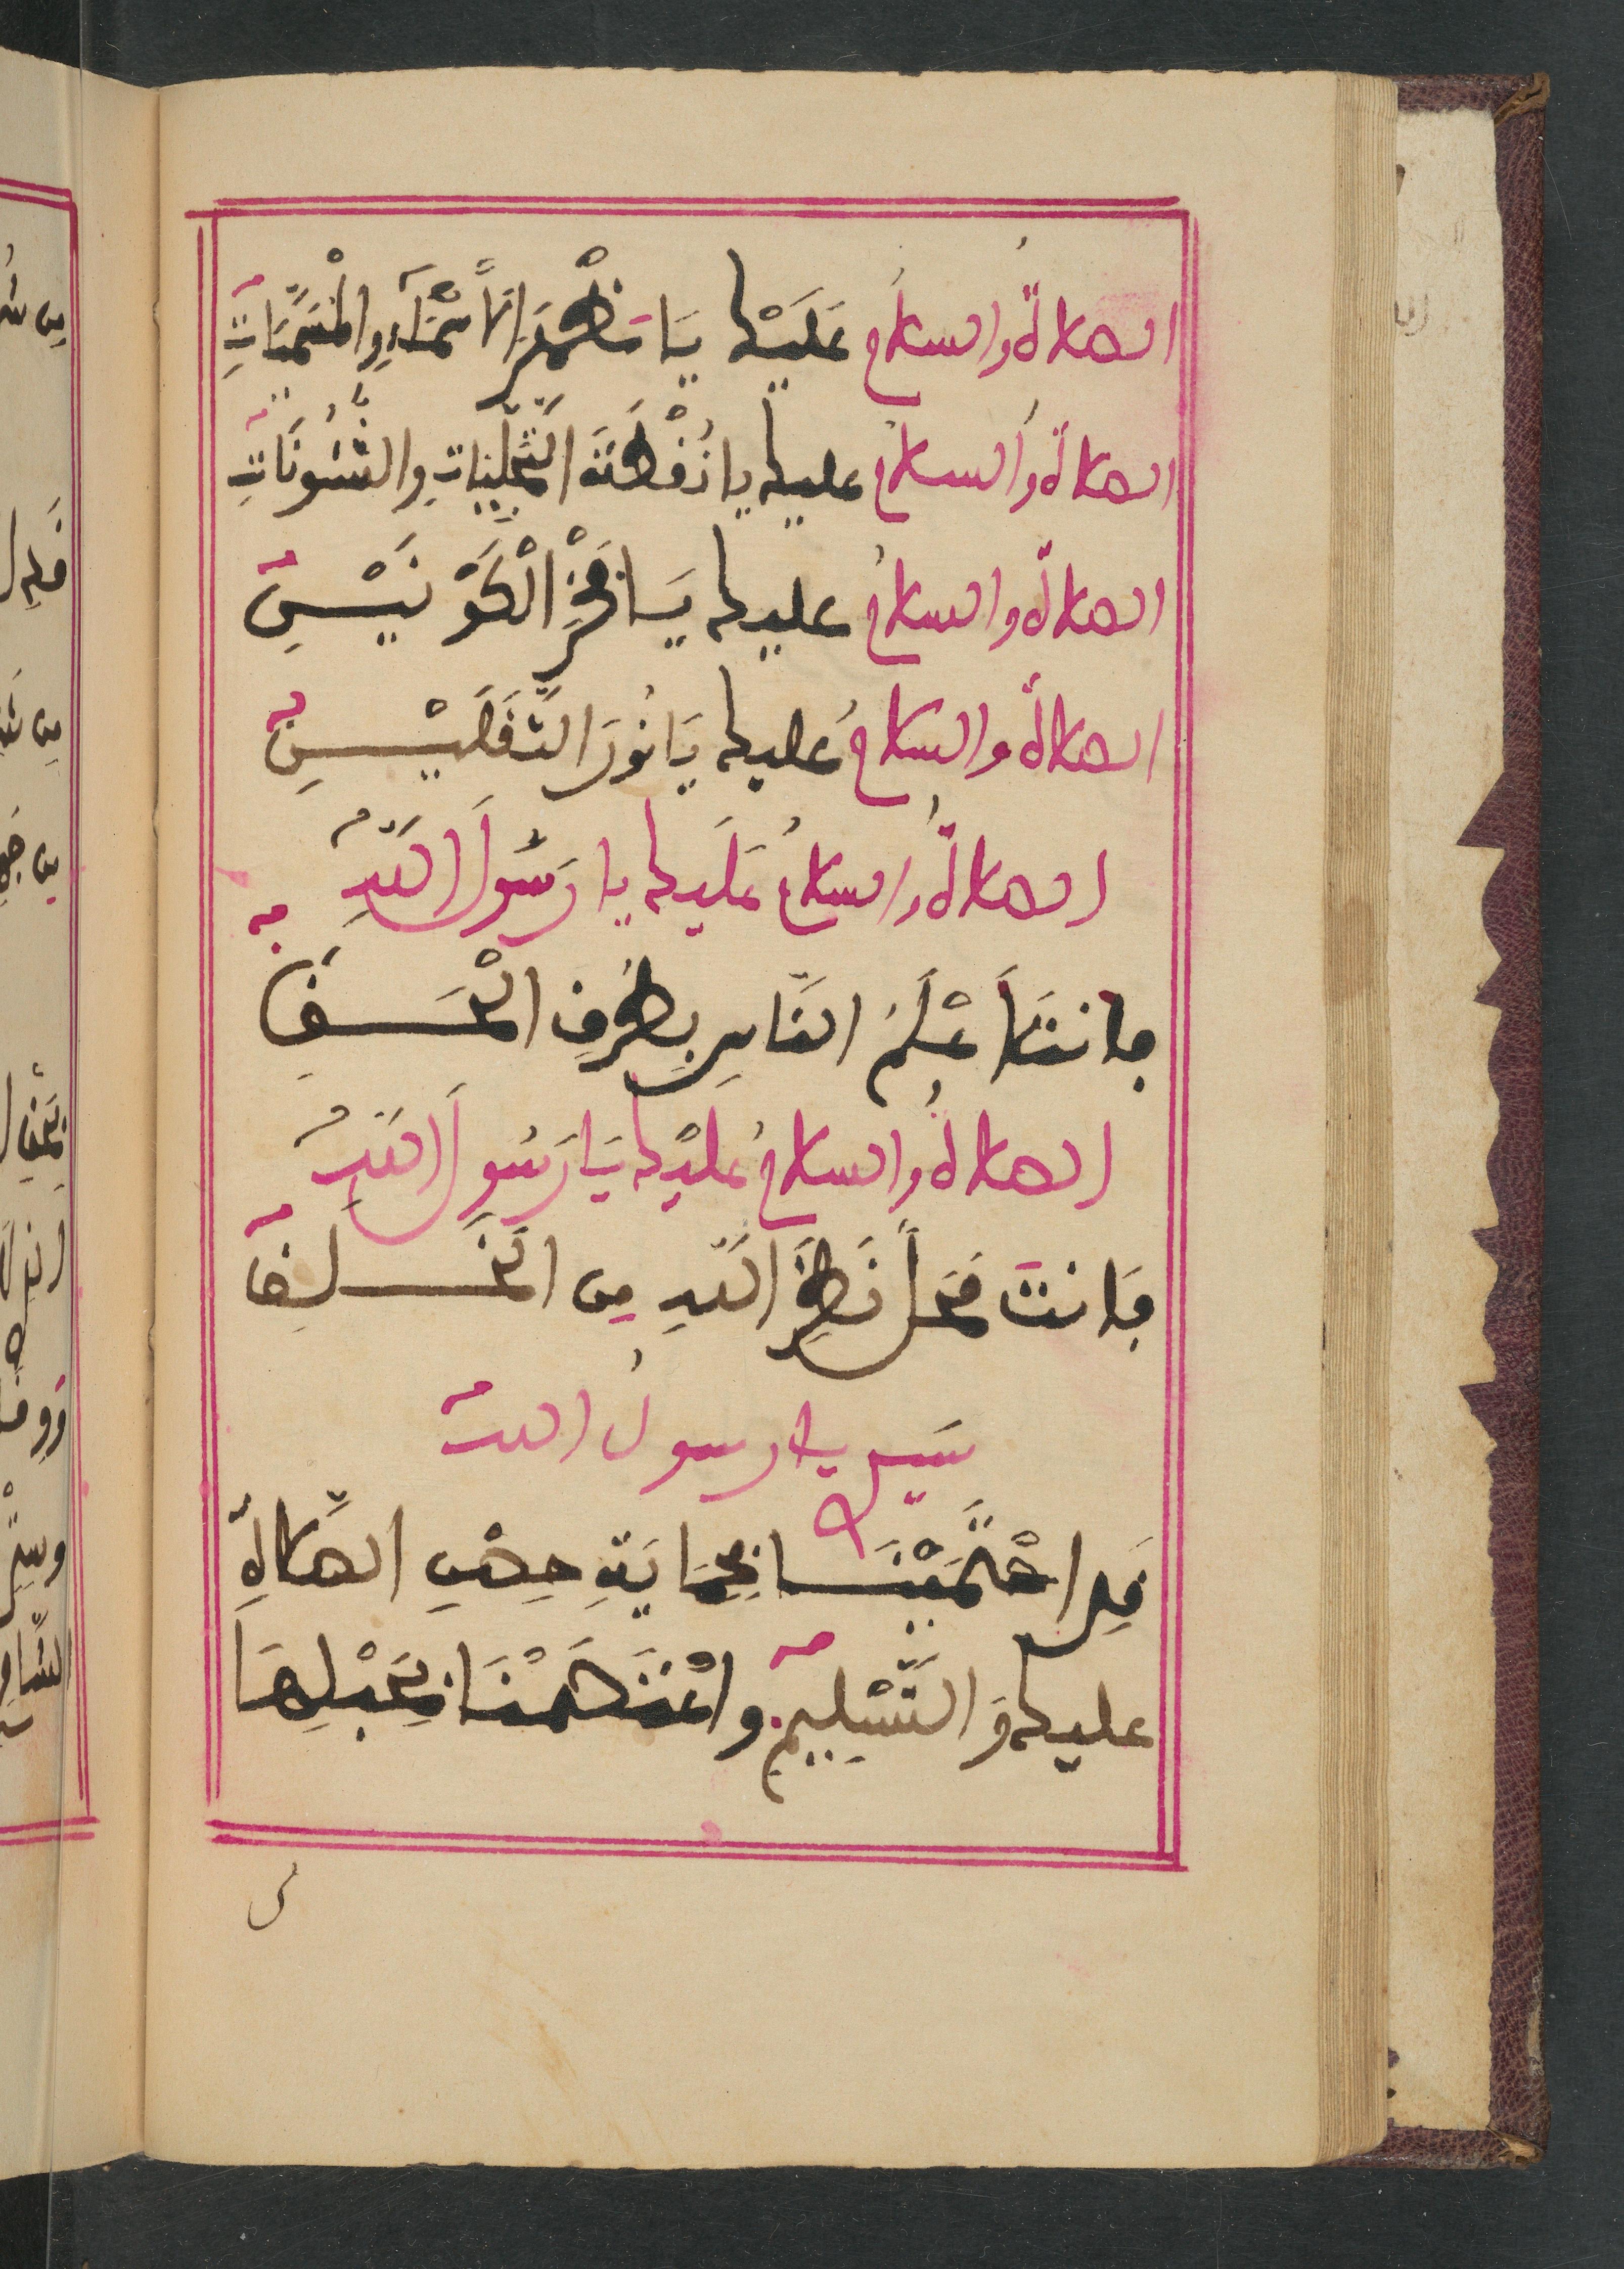 الصلاةُ والسلامُ عَلَيْك يَا مَظْهَرَ الأَسْمَآءِ والْمُسَمَّيَاتِ
الصلاةُ والسلامُ عليك يا نُقْطَةَ التَّجَلِّيَاتِ والشُّئُونَاتِ
الصلاةُ والسلامُ عليك يَا فَخْرَ الْكَوْنَيْنِ
الصلاةُ والسلامُ عَليك يَا نُورَ الثَّقَلَيْنِ
الصلاةُ والسلامُ عَلَيك يا رَسُولَ اللَّهِ
فانتَ أَعْلَمُ النَّاسِ بِطُرُفِ الْحَقِّ
الصلاةُ والسلامُ عَلَيْك يَا رَسُولَ اللَّهِ
فَانتَ مَحَلُّ نَظَرِ اللَّهِ مِن الْخَلْقِ
سَيدي يا رسولَ اللهِ
قَدِ احْتَمَيْنَا بِحِمَايَةِ حِصْنِ الصَّلاةِ
عليك وَالتَّسْلِيمِ واعْتَصَمْنَا بِحَبْلِهَا